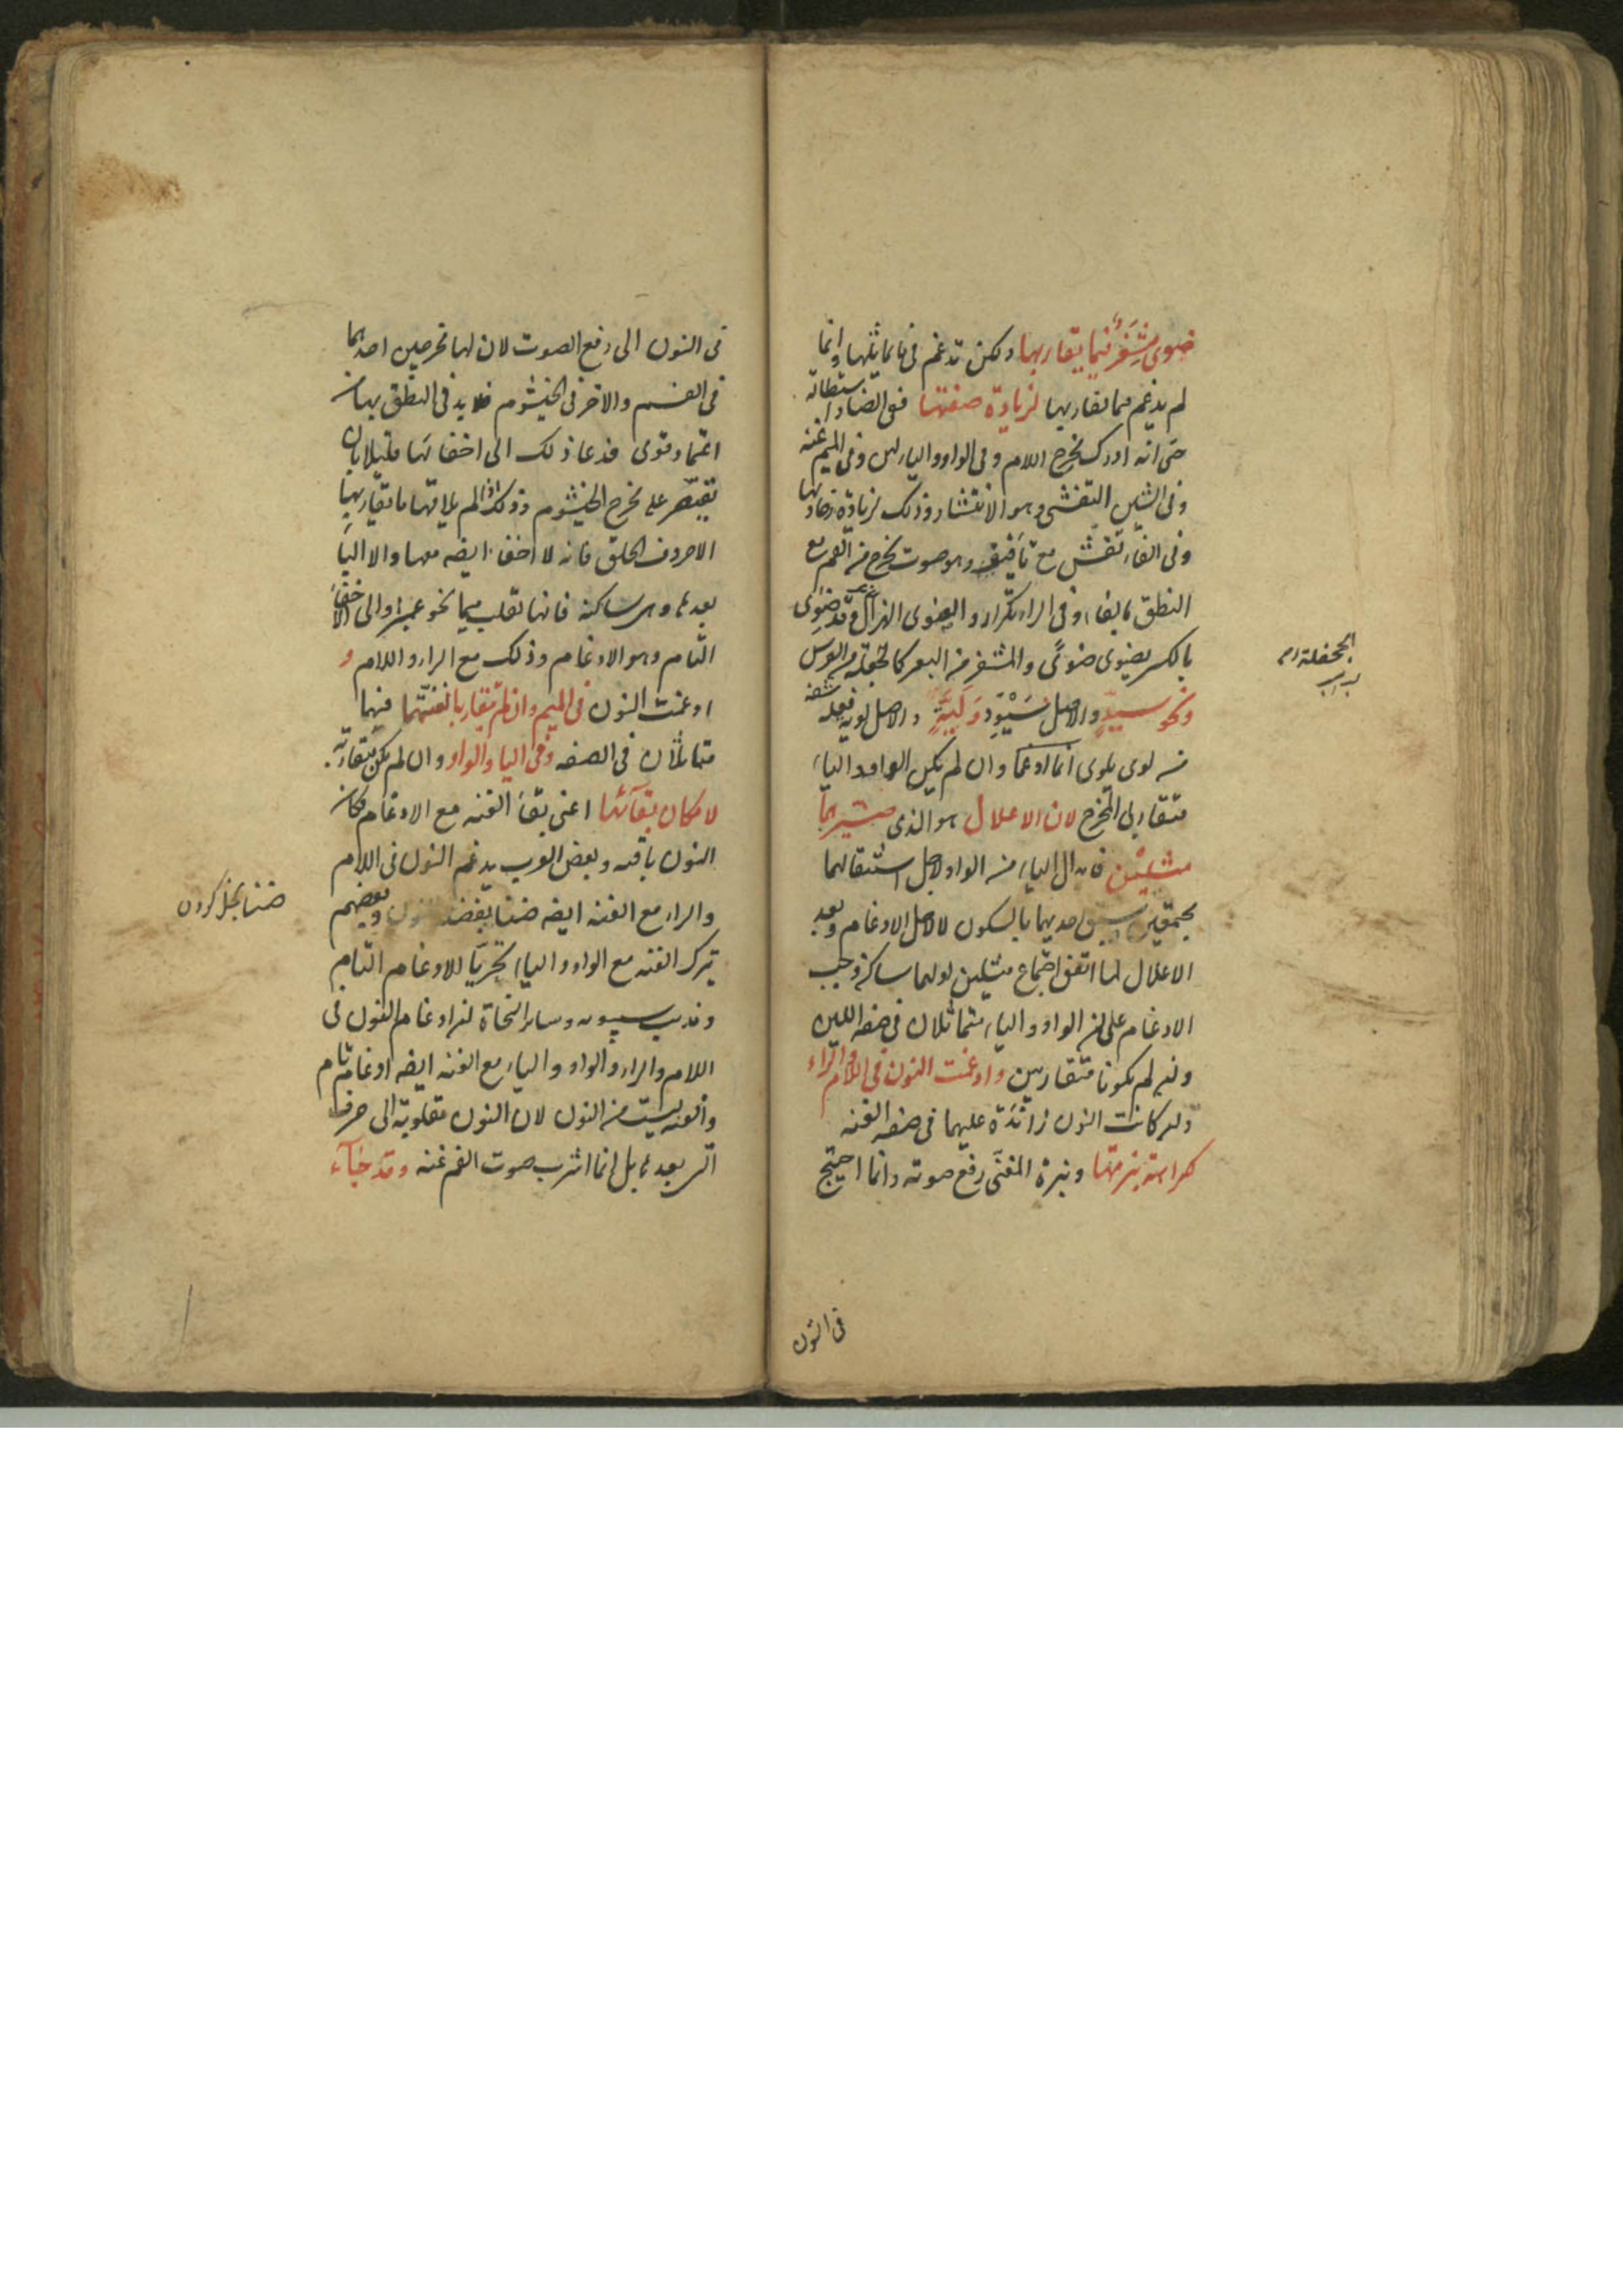 ضوی مشفر فیما یقاربها ولکن تدغم فی ما یماثلها وانما
لم یدغم فیما یقاربها لزیادة صفتها ففی الضاد استطالة
حتی انه ادرک مخرج اللام وفی الواو والیاء لین وفی المیم غنه
وفی الشین التفشی وهو الانتشار وذلک لزیادة رخاوتها
وفی الفاء تفش مع تأفیف وهو صوت یخرج من الفم مع
النطق بالفاء وفی الراء تکرار والضوی الهزال وقد ضوی
بالکسر یضوی ضوی والمشفر من البعیر کالجحفلة من الفرس
ونحو سید والاصل سیود ولیة والاصل لویة فعلة
من لوی یلوی انما ادغما وان لم یکن الواو والیاء
متقاربی المخرج لان الاعلال هو الذی صیرهما
مثلین فابدال الیاء من الواو لاجل استثقالهما
مجتمعین سبق احدیهما بالسکون لا لاجل الادغام وبعد
الاعلال لما اتفق اجتماع مثلین اولهما ساکن وجب
الادغام علی ان الواو والیاء متماثلان فی صفة اللین
وان لم یکونا متقاربین وادغمت النون فی اللام والراء
وان کانت النون زائدة علیهما فی صفه الغنه
کراهة نبرتها ونبرة المغنی رفع صوته وانما احتیج
فی النون
الجحفلة
فی النون الی رفع الصوت لان لها مخرجین احدهما
فی الفم والاخر فی الخیشوم فلابد فی النطق بها من
اعتماد قوی فدعا ذلک الی اخفائها قلیلا بان
یقتصر علی مخرج الخیشوم وذلک اذا لم یلاقها ما یقاربها
الا حروف الحلق فانه لا اخفاء ایضه معها والا الباء
بعدها وهی ساکنة فانها تقلب میما نحو عمبر والی الاخفاء
التام وهو الادغام وذلک مع الراء واللام و
ادغمت النون فی المیم وان لم یتقاربا لغنتهما فیهما
متماثلان فی الصفه وفی الیاء والواو وان لم یکن متقاربه
لامکان بقائها اعنی بقاء الغنه مع الادغام فکان
النون باقیه وبعض العرب یدغم النون فی اللام
والراء مع الغنه ایضه ضنا بفضیلة النون وبعضهم
یترک الغنه مع الواو والیاء تحریا للادغام التام
ومذهب سیبویه وسایر النحاة ان ادغام النون فی
اللام والراء والواو والیاء مع الغنه ایضه ادغام تام
والغنه لیست من النون لان النون مقلوبة الی حرف
التی بعدها بل انما اشرب صوت الفم غنه وقد جاء
ضنا بخل کردن